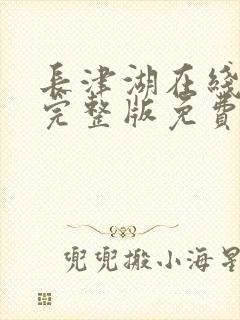 長津湖在綫
完整版免費
兜兜搬小海星